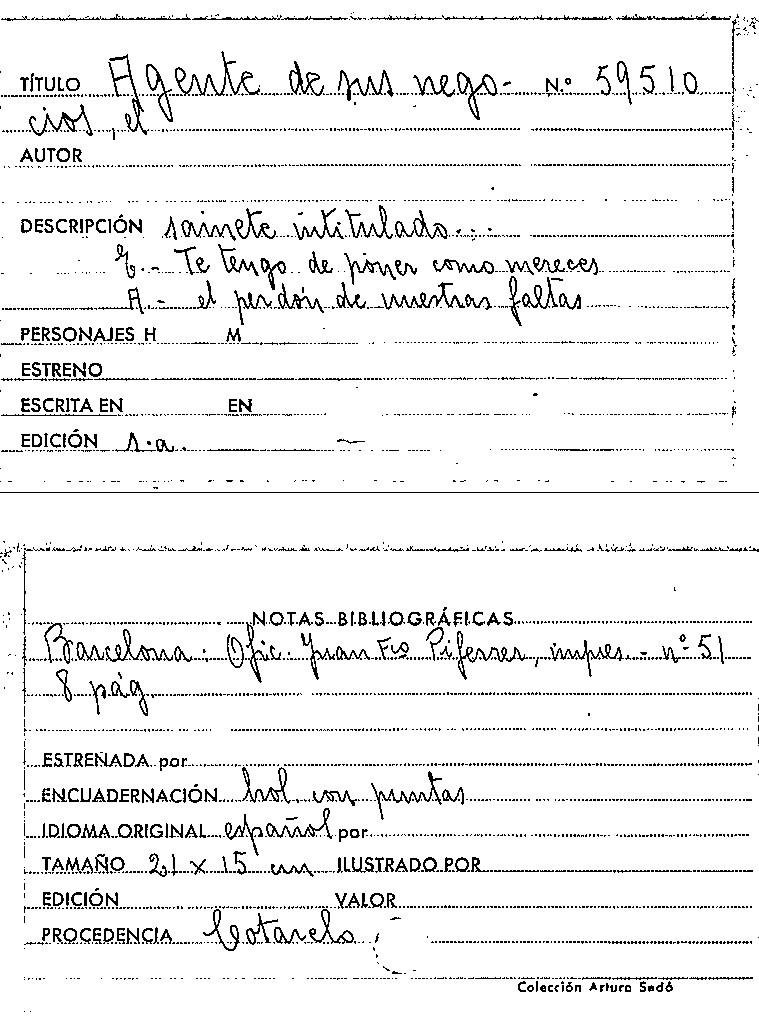 TÍTULO Agente de sus nego- N.º 59510
cios, el
AUTOR
DESCRIPCIÓN sainete intitulado...
E.- Te tengo de poner como mereces
A.- el perdón de nuestras faltas
PERSONAJES H M
ESTRENO
ESCRITA EN EN
EDICIÓN s.a. —
NOTAS BIBLIOGRÁFICAS
Barcelona: Ofic. Juan Fco Piferrer, impres. - nº 51
8 pág.
ESTRENADA por
ENCUADERNACIÓN hol. con puntas
IDIOMA ORIGINAL español por
TAMAÑO 21 x 15 cm ILUSTRADO POR
EDICIÓN VALOR
PROCEDENCIA Cotarelo
Colección Arturo Sedó